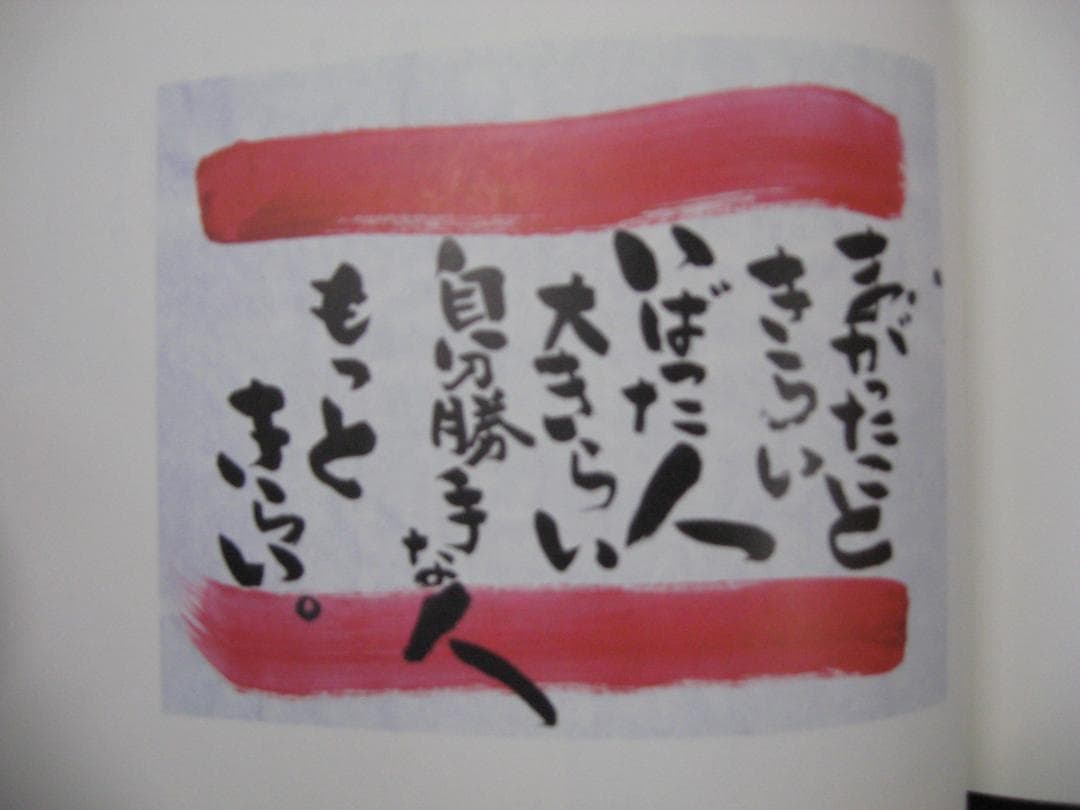 まがったこと
きらい
いばった人
大きらい
自分勝手な人
もっと
きらい。